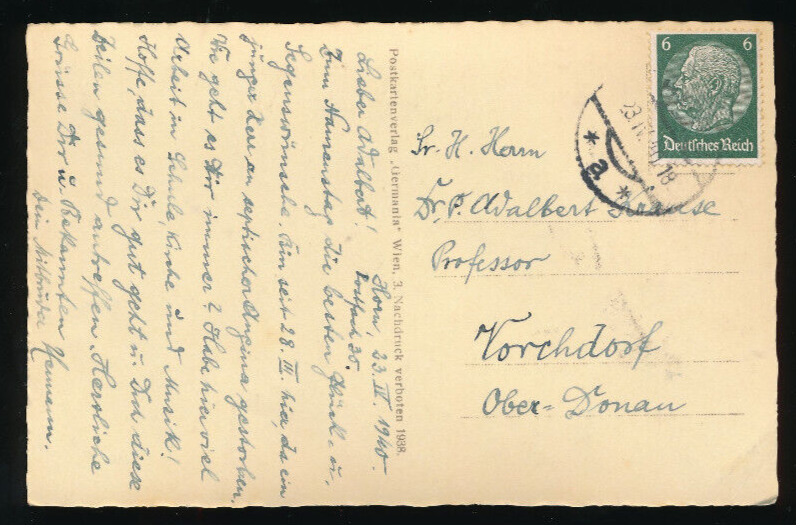 Horn, 23. IV. 1940.
Postfach 35.
Lieber Adalbert!
Zum Namenstag die besten Glück- u.
Segenswünsche. Bin seit 28. III. hier, da ein
junger Herr an septischer Angina gestorben.
Wie geht es Dir immer? Habe hier viel
Arbeit in Schule, Kirche und Musik!
Hoffe, dass es Dir gut geht u. Dich diese
Zeilen gesund antreffen. Herzliche
Grüsse Dir u. Bekannten
Dein Mitbruder Hermann.
Postkartenverlag „Germania“ Wien, 3. Nachdruck verboten 1938.
6 6
Deutsches Reich
* a *
Sr. H. Herrn
Dr. P. Adalbert Krause
Professor
Vorchdorf
Ober-Donau